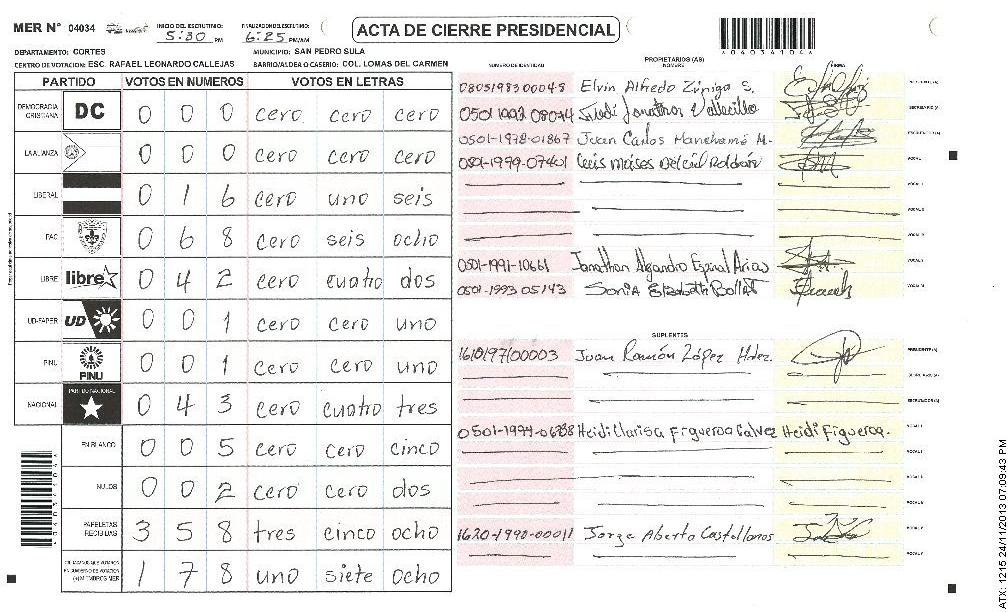 MER N° 04034
INICIO DEL ESCRUTINIO: 5:30 PM
FINALIZACION DEL ESCRUTINIO: 6:25 PM/AM
ACTA DE CIERRE PRESIDENCIAL
*04034104*
DEPARTAMENTO: CORTES
MUNICIPIO: SAN PEDRO SULA
CENTRO DE VOTACION: ESC. RAFAEL LEONARDO CALLEJAS
BARRIO/ALDEA O CASERIO: COL. LOMAS DEL CARMEN
PARTIDO VOTOS EN NUMEROS VOTOS EN LETRAS
DEMOCRACIA CRISTIANA DC 0 0 0 cero cero cero
LA ALIANZA 0 0 0 cero cero cero
LIBERAL 0 1 6 cero uno seis
PAC 0 6 8 cero seis ocho
LIBRE libre 0 4 2 cero cuatro dos
UD-FAPER UD 0 0 1 cero cero uno
PINU PINU 0 0 1 cero cero uno
NACIONAL PARTIDO NACIONAL 0 4 3 cero cuatro tres
EN BLANCO 0 0 5 cero cero cinco
NULOS 0 0 2 cero cero dos
PAPELETAS RECIBIDAS 3 5 8 tres cinco ocho
CIUDADANOS QUE VOTARON
EN CUADERNO DE VOTACION
(+) MIEMBROS MER 1 7 8 uno siete ocho
PROPIETARIOS (AS)
NUMERO DE IDENTIDAD NOMBRE FIRMA
0805198300048 Elvin Alfredo Zúniga S.
0501 1992 08074 SECRETARIO (A)
0501-1978-01867 Juan Carlos Manchamé M. ESCRUTADOR (A)
0501-1999-07401 VOCAL I
0501-1991-10661 Jonathan Alejandro Espinal Arias
0501-1993 05143 Sonia Elizabeth
SUPLENTES
1610197100003 Juan Ramón López Hdez. PRESIDENTE (A)
SECRETARIO (A)
ESCRUTADOR (A)
0501-1994-06838 Heidi Clarisa Figueroa Galvez Heidi Figueroa. VOCAL I
1620-1990-00011 Jorge Alberto Castellanos
ATX: 1215 24/11/2013 07:09:43 PM